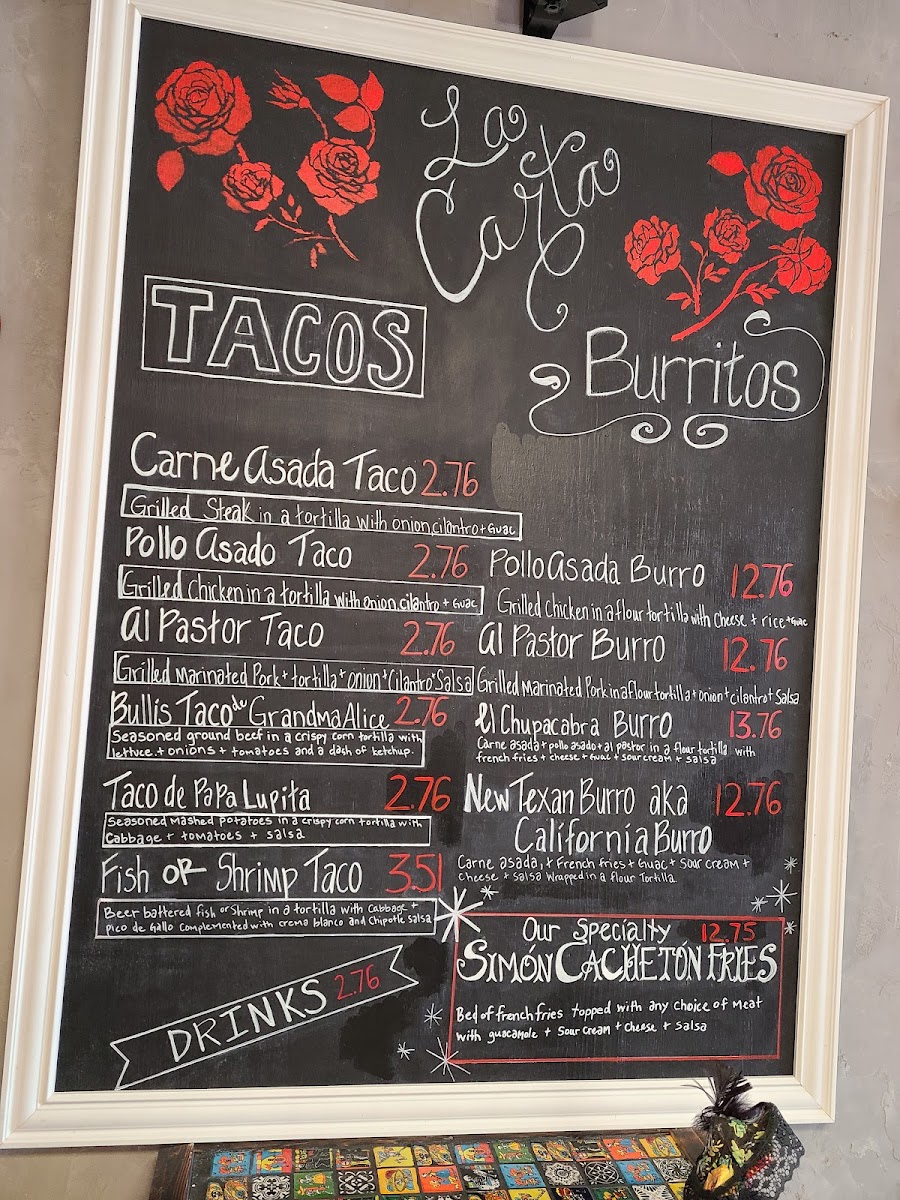 La
Carta
TACOS
Carne Asada Taco 2.76
Grilled Steak in a tortilla with onion, cilantro + Guac
Pollo Asado Taco 2.76
Grilled Chicken in a tortilla with onion, cilantro + Guac
Al Pastor Taco 2.76
Grilled Marinated Pork + tortilla + onion + Cilantro + Salsa
Bullis Taco de GrandmaAlice 2.76
Seasoned ground beef in a crispy corn tortilla with
lettuce + onions + tomatoes and a dash of ketchup.
Taco de Papa Lupita 2.76
Seasoned Mashed Potatoes in a crispy corn tortilla with
Cabbage + tomatoes + salsa
Fish OR Shrimp Taco 3.51
Beer battered fish or Shrimp in a tortilla with Cabbage +
Pico de Gallo Complemented with crema blanco and Chipotle Salsa
DRINKS 2.76
Burritos
Pollo Asada Burro 12.76
Grilled Chicken in a flour tortilla with Cheese + rice + Guac
Al Pastor Burro 12.76
Grilled Marinated Pork in a flour tortilla + onion + cilantro + Salsa
El Chupacabra Burro 13.76
Carne asada + pollo asado + al pastor in a flour tortilla with
french fries + cheese + Guac + sour cream + salsa
New Texan Burro aka 12.76
California Burro
Carne asada, + French Fries + Guac + Sour Cream +
Cheese + Salsa Wrapped in a Flour Tortilla
Our Specialty 12.75
SIMÓN CACHETÓN FRIES
Bed of french fries topped with any choice of Meat
with guacamole + Sour Cream + Cheese + Salsa